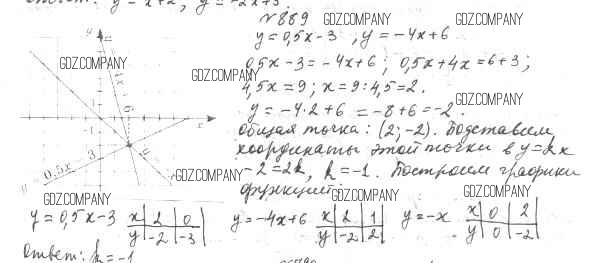 Ответ: y = x+2, y = -2x+3.
№889 GDZ.COMPANY GDZ.COMPANY
y = 0,5x-3, y = -4x+6
GDZ.COMPANY GDZ.COMPANY
0,5x-3 = -4x+6; 0,5x+4x = 6+3;
4,5x = 9; x = 9:4,5 = 2.
y = -4·2+6 = -8+6 = -2. GDZ.COMPANY
общая точка: (2; -2). Подставим
координаты этой точки в y = kx
-2 = 2k, k = -1. Построим графики
функций:
y
x
-1
y = 0,5x-3
GDZ.COMPANY GDZ.COMPANY GDZ.COMPANY GDZ.COMPANY
y = 0,5x-3 x 2 0 y = -4x+6 x 2 1 y = -x x 0 2
y -2 -3 y -2 2 y 0 -2
Ответ: k = -1 GDZ.COMPANY GDZ.COMPANY